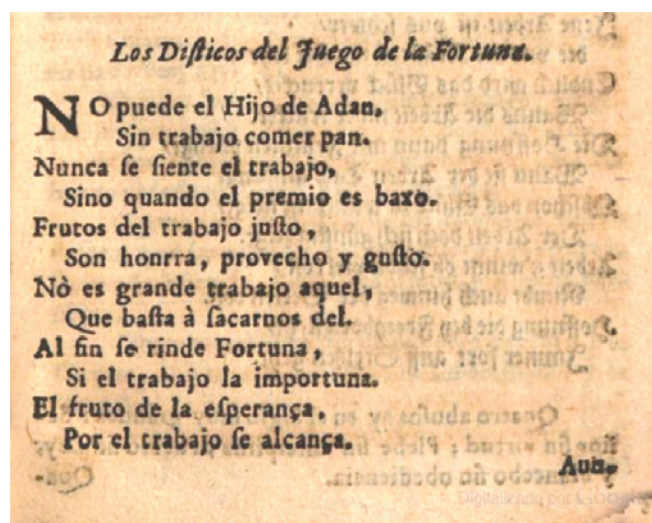 Los Diſticos del Juego de la Fortuna.
NO puede el Hijo de Adan,
Sin trabajo comer pan.
Nunca ſe ſiente el trabajo,
Sino quando el premio es baxo.
Frutos del trabajo juſto,
Son honrra, provecho y guſto.
Nò es grande trabajo aquel,
Que baſta à ſacarnos del.
Al fin ſe rinde Fortuna,
Si el trabajo la importuna.
El fruto de la eſperança,
Por el trabajo ſe alcança.
Aun-
Digitalizado por Google